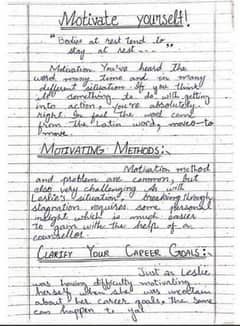 Motivate yourself!
"Bodies at rest tend to
stay at rest..."
Motivation. You've heard the
word many time and in many
different situation. If you think
it something to do with getting
into action, you're absolutely
right. In fact the word came
from the Latin word, moveo-to
move.
MOTIVATING METHODS:
Motivation method
and problem are common, but
also very challenging. As with
Leslie's situation, breaking through
stagnation requires some personal
insight which is much easier
to gain with the help of an
counsellor.
CLARIFY YOUR CAREER GOALS:
Just as Leslie
was having difficulty motivating
herself when she was uncertain
about her career goals, the same
can happen to you